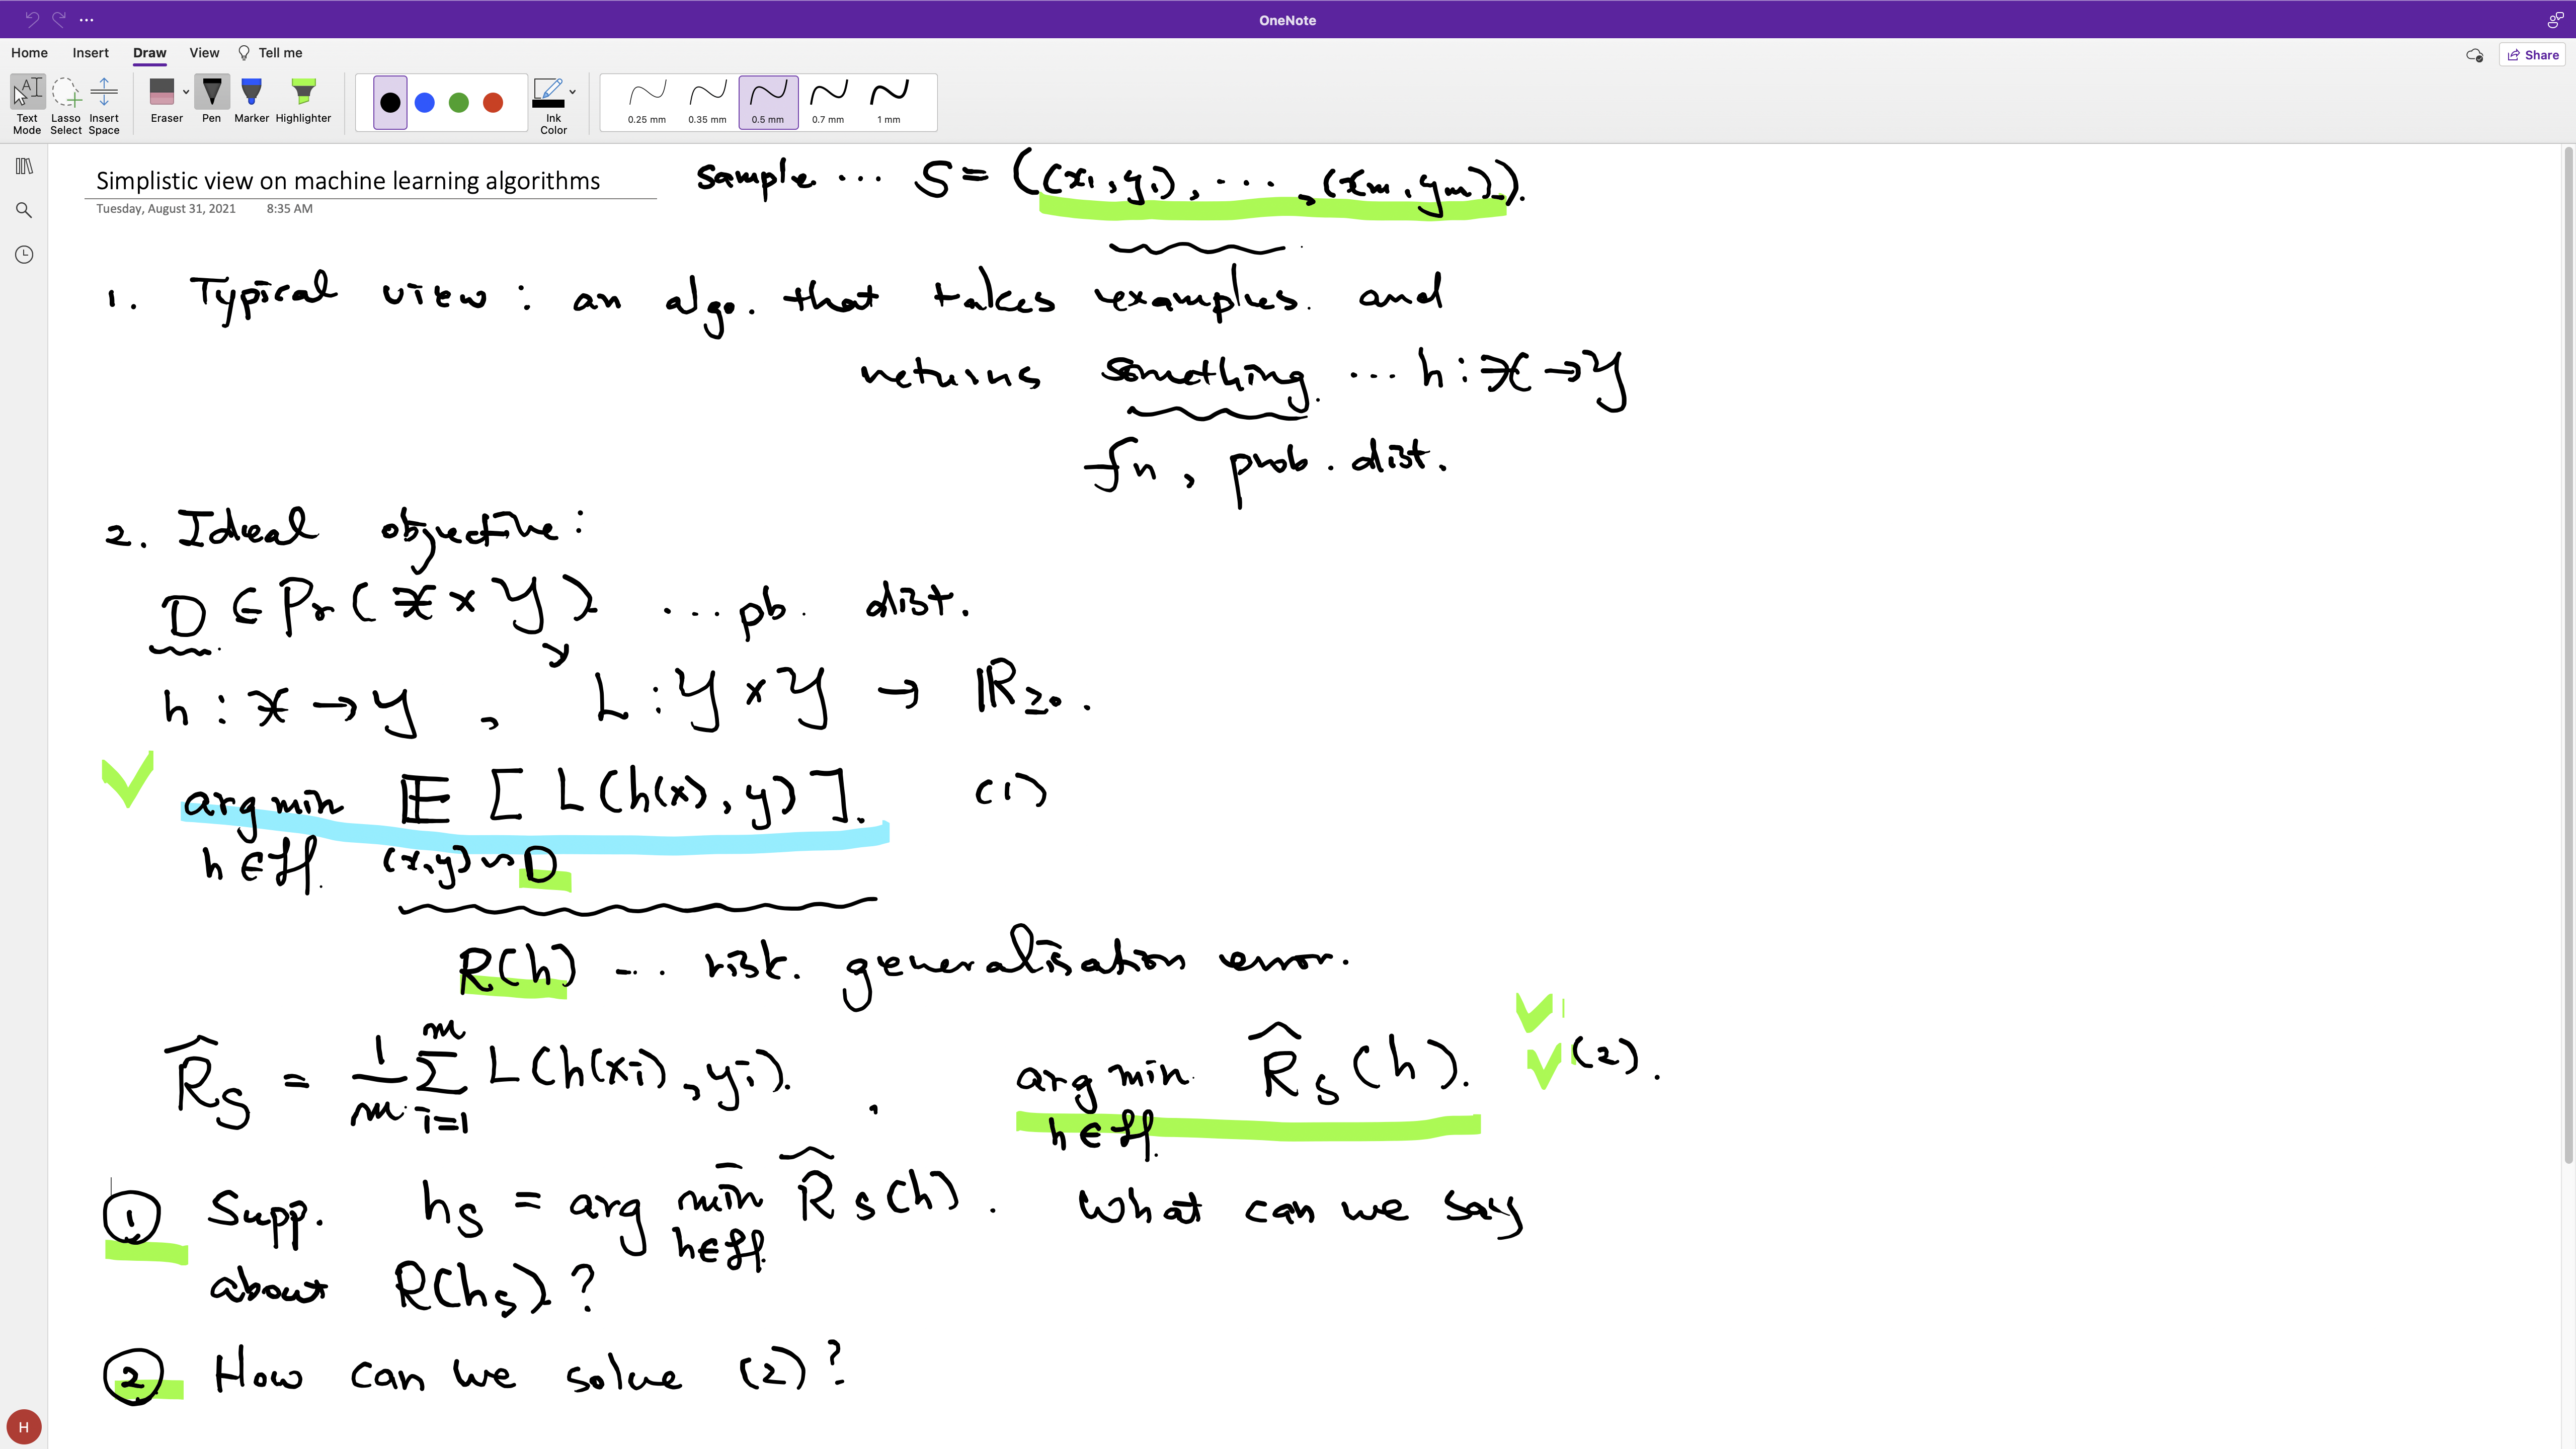 OneNote
Home Insert Draw View Tell me
Share
Text Mode
Lasso Select
Insert Space
Eraser
Pen
Marker
Highlighter
Ink Color
0.25 mm
0.35 mm
0.5 mm
0.7 mm
1 mm
Simplistic view on machine learning algorithms
Tuesday, August 31, 2021 8:35 AM
sample ... S = ((x₁,y₁), ..., (xₘ,yₘ)).
1. Typical view : an algo. that takes examples. and
returns something. ... h : X → Y
fn, prob. dist.
2. Ideal objective :
D ∈ Pr(X × Y) ... pb. dist.
h : X → Y , L : Y × Y → ℝ≥0.
arg min 𝔼 [ L(h(x), y) ]. (1)
h ∈ H. (x,y) ~ D
R(h) ... risk. generalisation error.
R̂_S = 1/m Σ_{i=1}^{m} L(h(xᵢ), yᵢ). , arg min R̂_S(h). (2).
h ∈ H.
① Supp. h_S = arg min R̂_S(h). What can we say
h ∈ H.
about R(h_S)?
② How can we solve (2)?
H